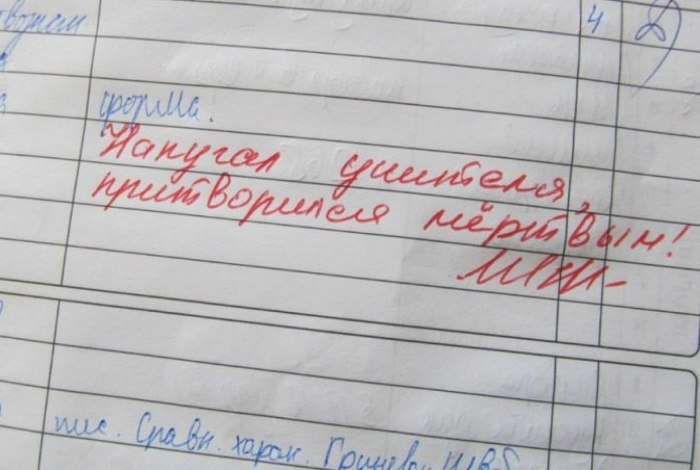 4
форма.
Напугал учителя,
притворился мёртвым!
пис. Сравн. харак. Гринева